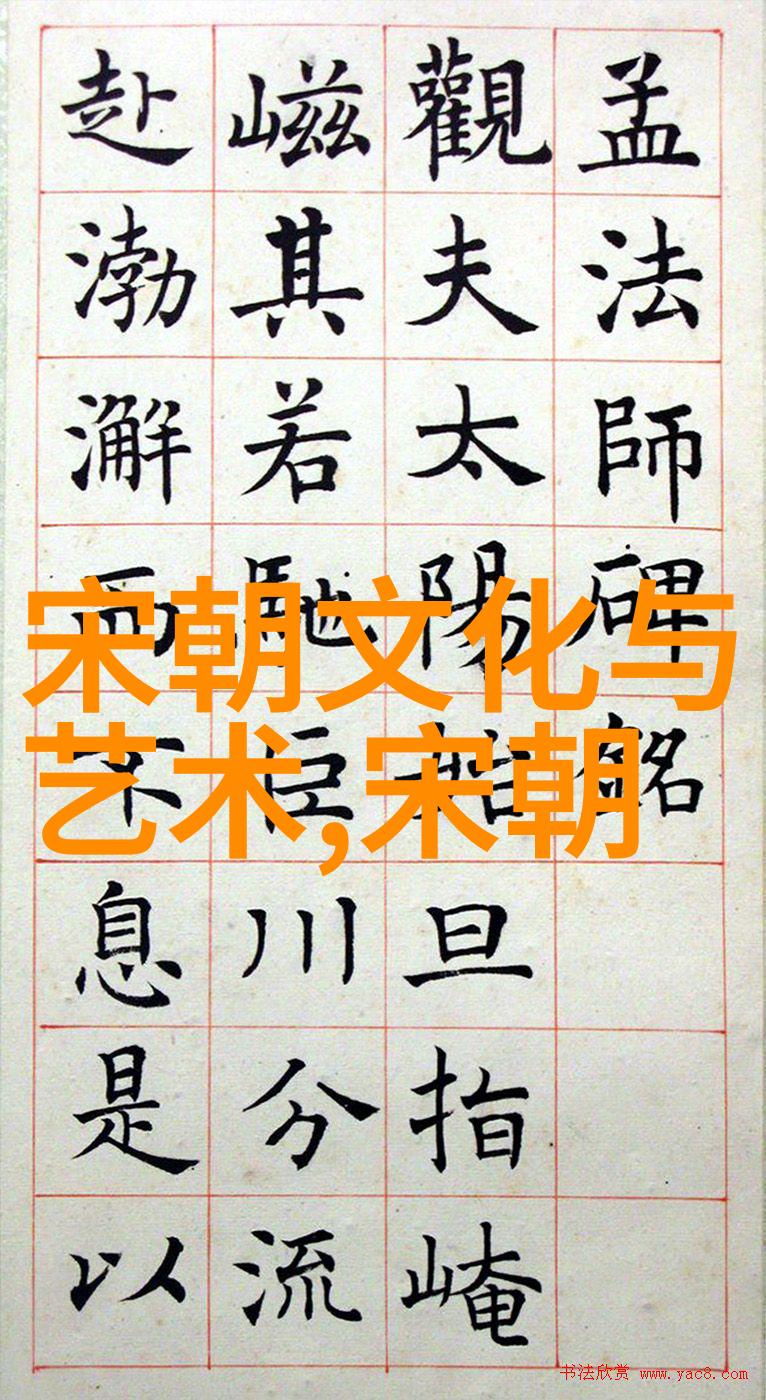 孟法師碑銘
觀夫太陽始旦指崦
嵫其若馳巨川分流
赴渤澥而不息是以
宋朝文化与
艺术,宋朝
书法欣赏 www.yac8.com